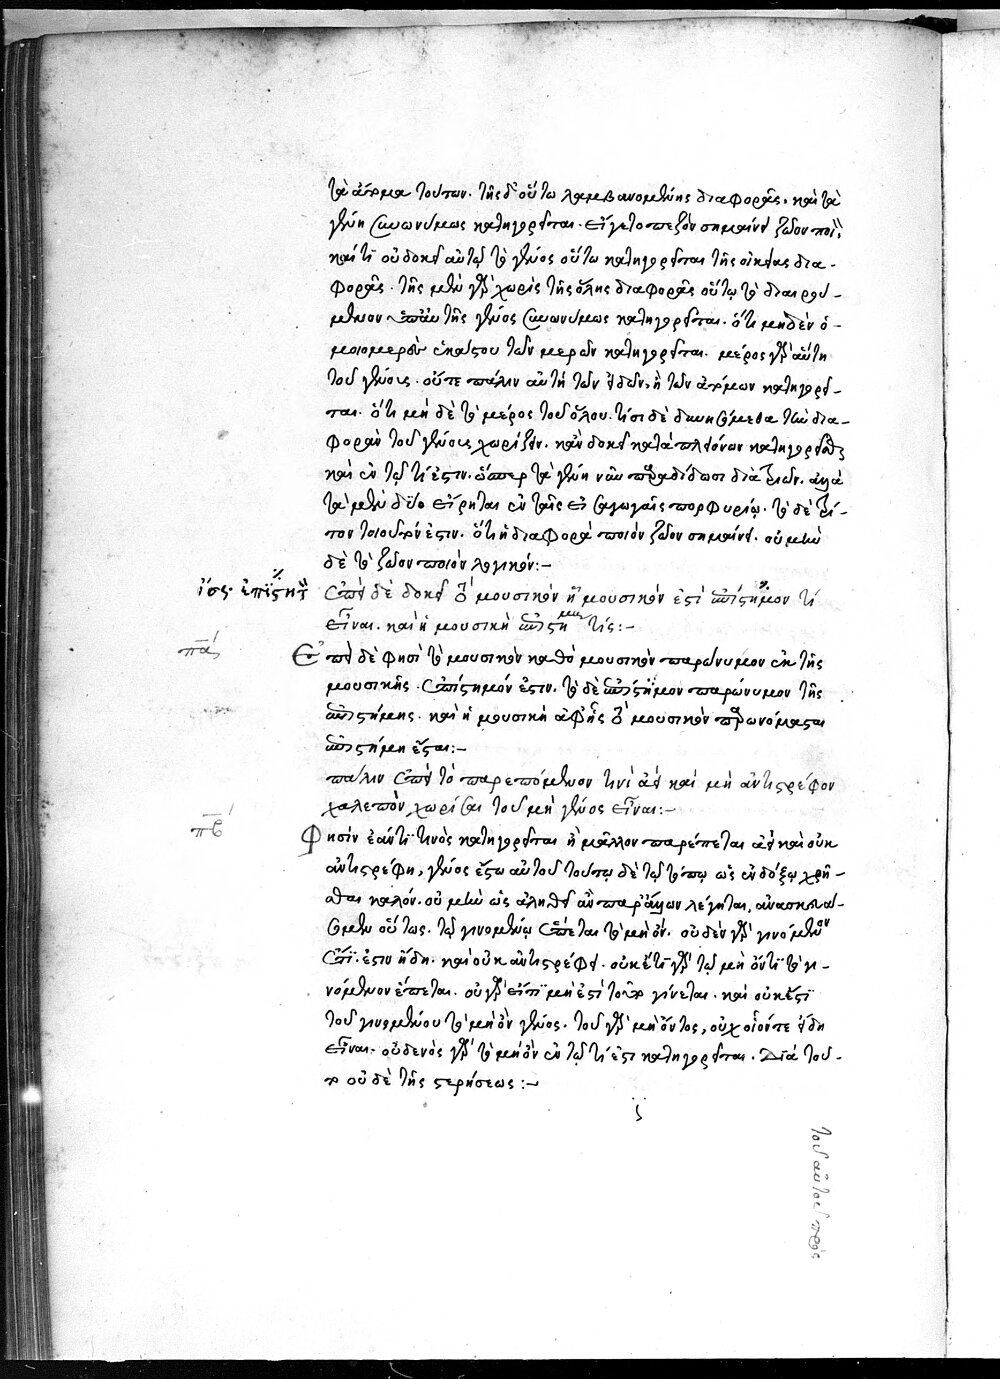 τὰ ἄτομα τούτων. τῆς δ' οὕτω λαμβανομένης διαφορᾶς, καὶ τὰ
γένη συνωνύμως κατηγορεῖται. εἴγε τὸ πεζὸν σημαίνει ζῶον ποιὸν
καίτοι οὐ δοκεῖ αὐτῷ τὸ γένος οὕτω κατηγορεῖται τῆς οἰκείας δια-
φορᾶς. τῆς μὲν γὰρ χωρὶς τῆς ὅλης διαφορᾶς οὕτω τὸ διαιρού-
μενον ἐπὰν τῆς γένος συνωνύμως κατηγορεῖται. ὅτι μηδὲν ὁ-
μοιομερὸν ἑκάστου τῶν μερῶν κατηγορεῖται. μέρος γὰρ αὕτη
τοῦ γένους. οὔτε πάλιν αὐτὴ τῶν εἰδῶν, ἢ τῶν ἀτόμων κατηγορεῖ-
ται. ὅτι μὴ δὲ τὸ μέρος τοῦ ὅλου. τίσι δὲ δυνησόμεθα τὴν δια-
φορὰν τοῦ γένους χωρίζειν. κἂν δοκεῖ κατὰ πλειόνων κατηγορεῖσθαι
καὶ ἐν τῷ τί ἐστιν. ὥσπερ τὰ γένη νῦν παραδίδωσι διὰ τριῶν. ἀλλὰ
τὰ μὲν δύο εἴρηται ἐν ταῖς εἰσαγωγαῖς πορφυρίῳ. τὸ δὲ τρί-
τον τοιοῦτόν ἐστιν. ὅτι ἡ διαφορὰ ποιὸν ζῶον σημαίνει. οὐ μὴν
δὲ τὸ ζῶον ποιὸν λογικόν:-
ἴσως. ἐπιστητ Ἐπεὶ δὲ δοκεῖ τὸ μουσικὸν ᾗ μουσικόν ἐστι ἐπιστῆμον τί
εἶναι. καὶ ἡ μουσικὴ ἐπιστήμη τίς:-
πα Ἐπεὶ δὲ φησὶ τὸ μουσικὸν καθὸ μουσικὸν παρώνυμον ἐκ τῆς
μουσικῆς. ἐπιστῆμόν ἐστιν. τὸ δὲ ἐπιστῆμον παρώνυμον τῆς
ἐπιστήμης. καὶ ἡ μουσικὴ ἀφ' ἧς τὸ μουσικὸν παρωνόμασται
ἐπιστήμη ἔσται:-
πάλιν ἐπεὶ τὸ παρεπόμενον τινὶ ἀεὶ καὶ μὴ ἀντιστρέφον
χαλεπὸν χωρίσαι τοῦ μὴ γένος εἶναι:-
πβ Φησὶν ἐάν τι τινὸς κατηγορεῖται ἢ μᾶλλον παρέπεται ἀεὶ καὶ οὐκ
ἀντιστρέφῃ, γένος ἔστω αὐτοῦ τούτω δὲ τῷ τόπῳ ὡς ἐνδόξῳ χρῆ-
σθαι καλόν. οὐ μὴν ὡς ἀληθεῖ ἂν παρ' ἄλλων λέγηται, ἀνασκευά-
σομεν οὕτως. τῷ γινομένῳ ἕπεται τὸ μὴ ὄν. οὐδὲν γὰρ γινόμενον
ἔτι ἐστιν ἤδη. καὶ οὐκ ἀντιστρέφει. οὐκέτι γὰρ τῷ μὴ ὄντι τὸ γι-
νόμενον ἕπεται. οὐ γὰρ εἴ τι μὴ ἐστὶ τοῦτο γίνεται. καὶ οὐκ ἔστι
τοῦ γινομένου τὸ μὴ ὂν γένος. τοῦ γὰρ μὴ ὄντος, οὐχ οἷόντε εἴδη
εἶναι. οὐδενὸς γὰρ τὸ μὴ ὂν ἐν τῷ τί ἐστι κατηγορεῖται. Διὰ τοῦ-
το οὐδὲ τῆς στερήσεως:-
τοῦ αὐτοῦ πρὸς